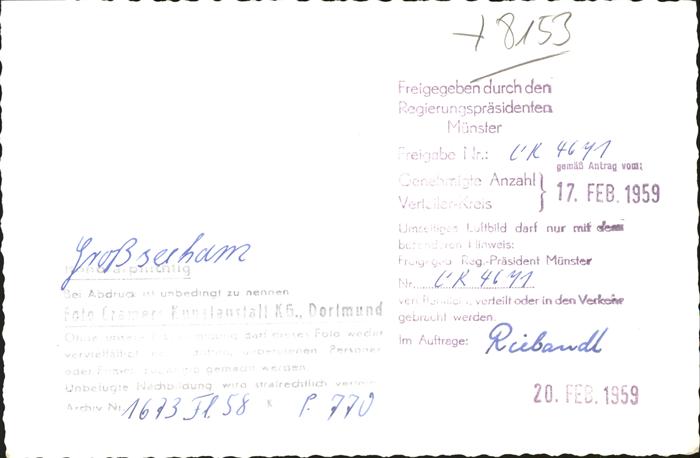 + 8153
Freigegeben durch den
Regierungspräsidenten
Münster
Freigabe Nr.: CK 4641
gemäß Antrag vom:
Genehmigte Anzahl
Verteiler-Kreis
17. FEB. 1959
Umseitiges Luftbild darf nur mit dem
besonderen Hinweis:
Freigegeb. Reg.-Präsident Münster
Nr. CK 4641
verteilt oder in den Verkehr
gebracht werden.
Im Auftrage: Riebandt
20. FEB. 1959
Großseeham
Bei Abdruck ist unbedingt zu nennen
Foto Cramers Kunstanstalt KG., Dortmund
Ohne unsere darf dieses Foto weder
vervielfältigt noch dritten, unberufenen Personen
oder Firmen zugängig gemacht werden.
Unbefugte Nachbildung wird strafrechtlich
Archiv Nr. 1673 Fl. 58 K P. 770